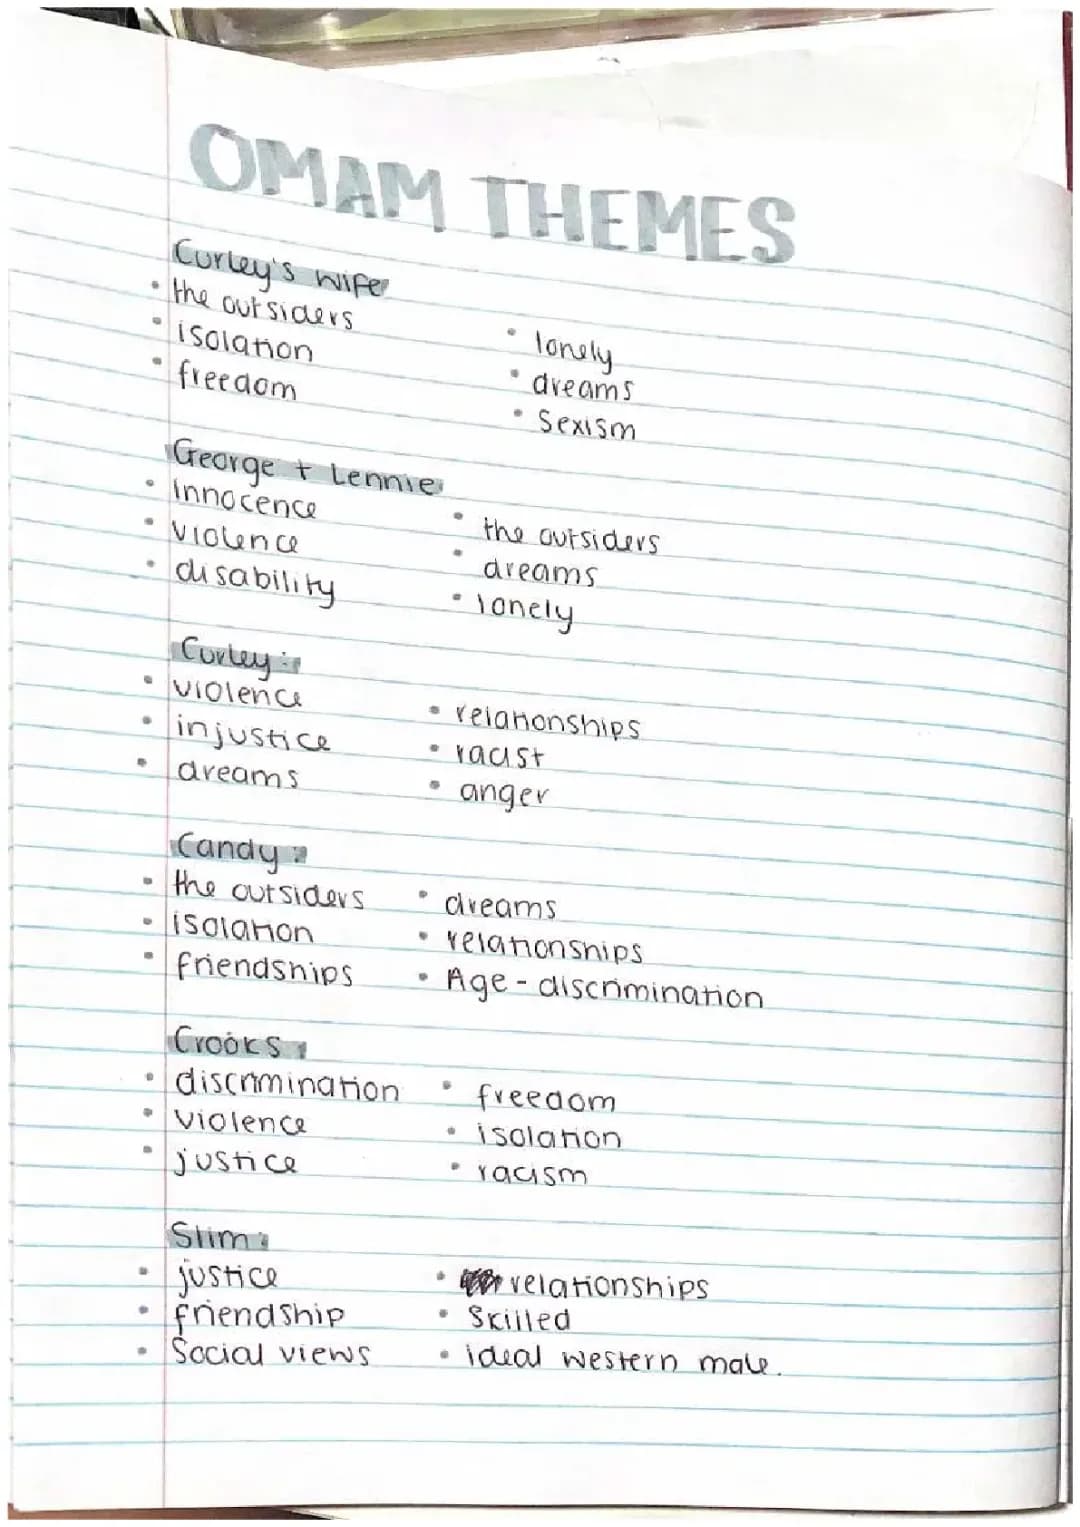 OMAM THEMES
Curley's wife
• the outsiders
• isolation
• freedom
• lonely
• dreams
• Sexism
George + Lennie
• innocence
• violence
• disability
• the outsiders
• dreams
• lonely
Curley:
• violence
• injustice
• dreams
• relationships
• racist
• anger
Candy:
• the outsiders
• isolation
• friendships
• dreams
• relationships
• Age-discrimination
Crooks:
• discrimination
• violence
• justice
• freedom
• isolation
• racism
Slim:
• justice
• friendship
• Social views
• relationships
• Skilled
• ideal western male.